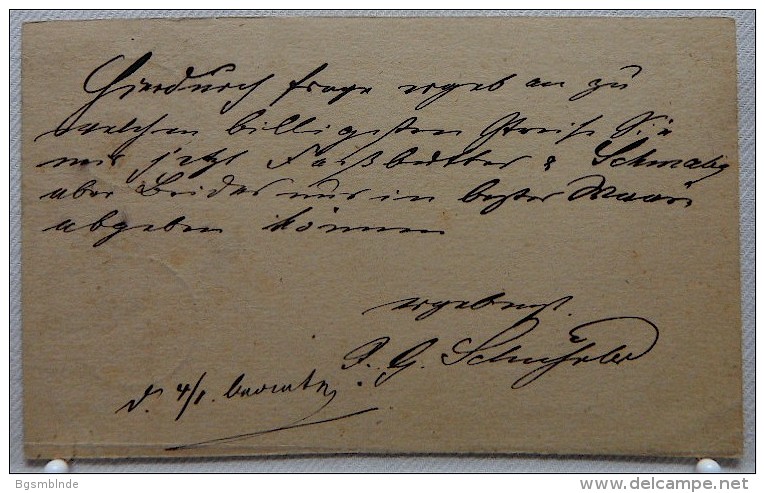 Hierdurch frage ergeb an zu
welchem billigsten Preise Sie
mir jetzt Faßbutter & Schmalz
aber Beides nur in bester Waare
abgeben können
ergebenst
P. G.
d. 4/1.
Bgsmblnde
delcampe.net